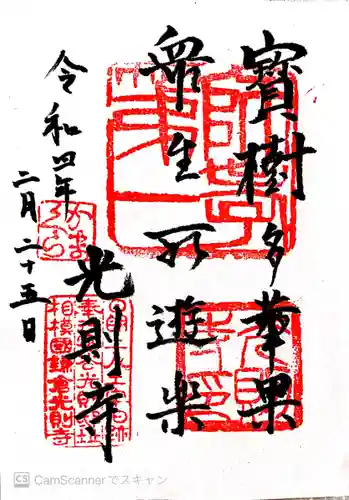 寶樹多華果
衆生所遊樂
光則寺
令和四年
二月二十五日
かまくら
相模國鎌倉光則寺
CS CamScannerでスキャン